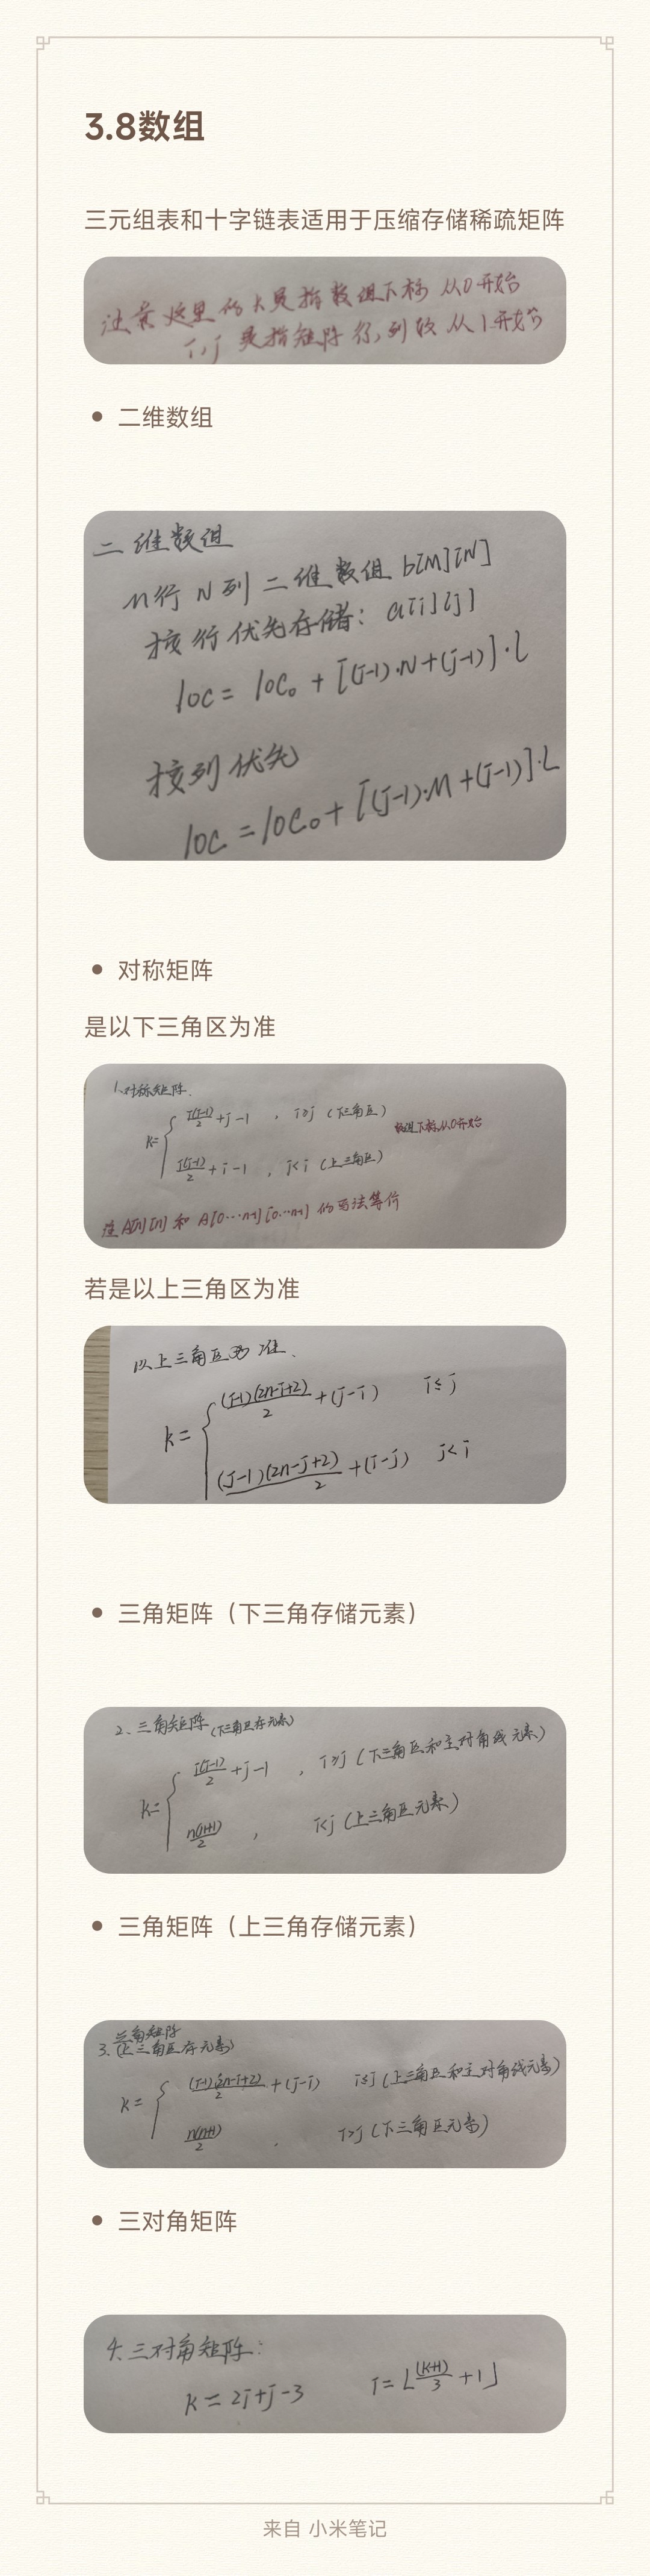 3.8数组
三元组表和十字链表适用于压缩存储稀疏矩阵
注意 这里的k是指数组下标 从0开始
i,j 是指矩阵 行,列数 从1开始
• 二维数组
二维数组
M行 N列 二维数组 b[M][N]
按行优先存储: a[i][j]
loc = loc₀ + [(i-1)·N+(j-1)]·L
按列优先
loc = loc₀ + [(j-1)·M+(i-1)]·L
• 对称矩阵
是以下三角区为准
1.对称矩阵.
k= { i(i-1)/2 +j-1 , i≥j (下三角区)
数组下标从0开始
j(j-1)/2 + i-1 , j<i (上三角区)
注 A[n][n] 和 A[0…n-1][0…n-1] 的写法等价
若是以上三角区为准
以上三角区为准.
k= { (i-1)(2n-i+2)/2 +(j-i) i≤j
(j-1)(2n-j+2)/2 +(i-j) j<i
• 三角矩阵（下三角存储元素）
2、三角矩阵 (下三角区存元素)
k= { i(i-1)/2 +j-1 , i≥j (下三角区和主对角线元素)
n(n+1)/2 , i<j (上三角区元素)
• 三角矩阵（上三角存储元素）
三角矩阵
3. (上三角区存元素)
k= { (i-1)(2n-i+2)/2 +(j-i) i≤j (上三角区和主对角线元素)
n(n+1)/2 , i>j (下三角区元素)
• 三对角矩阵
4.三对角矩阵:
k = 2i+j-3 i=⌊(k+1)/3 +1⌋
来自 小米笔记